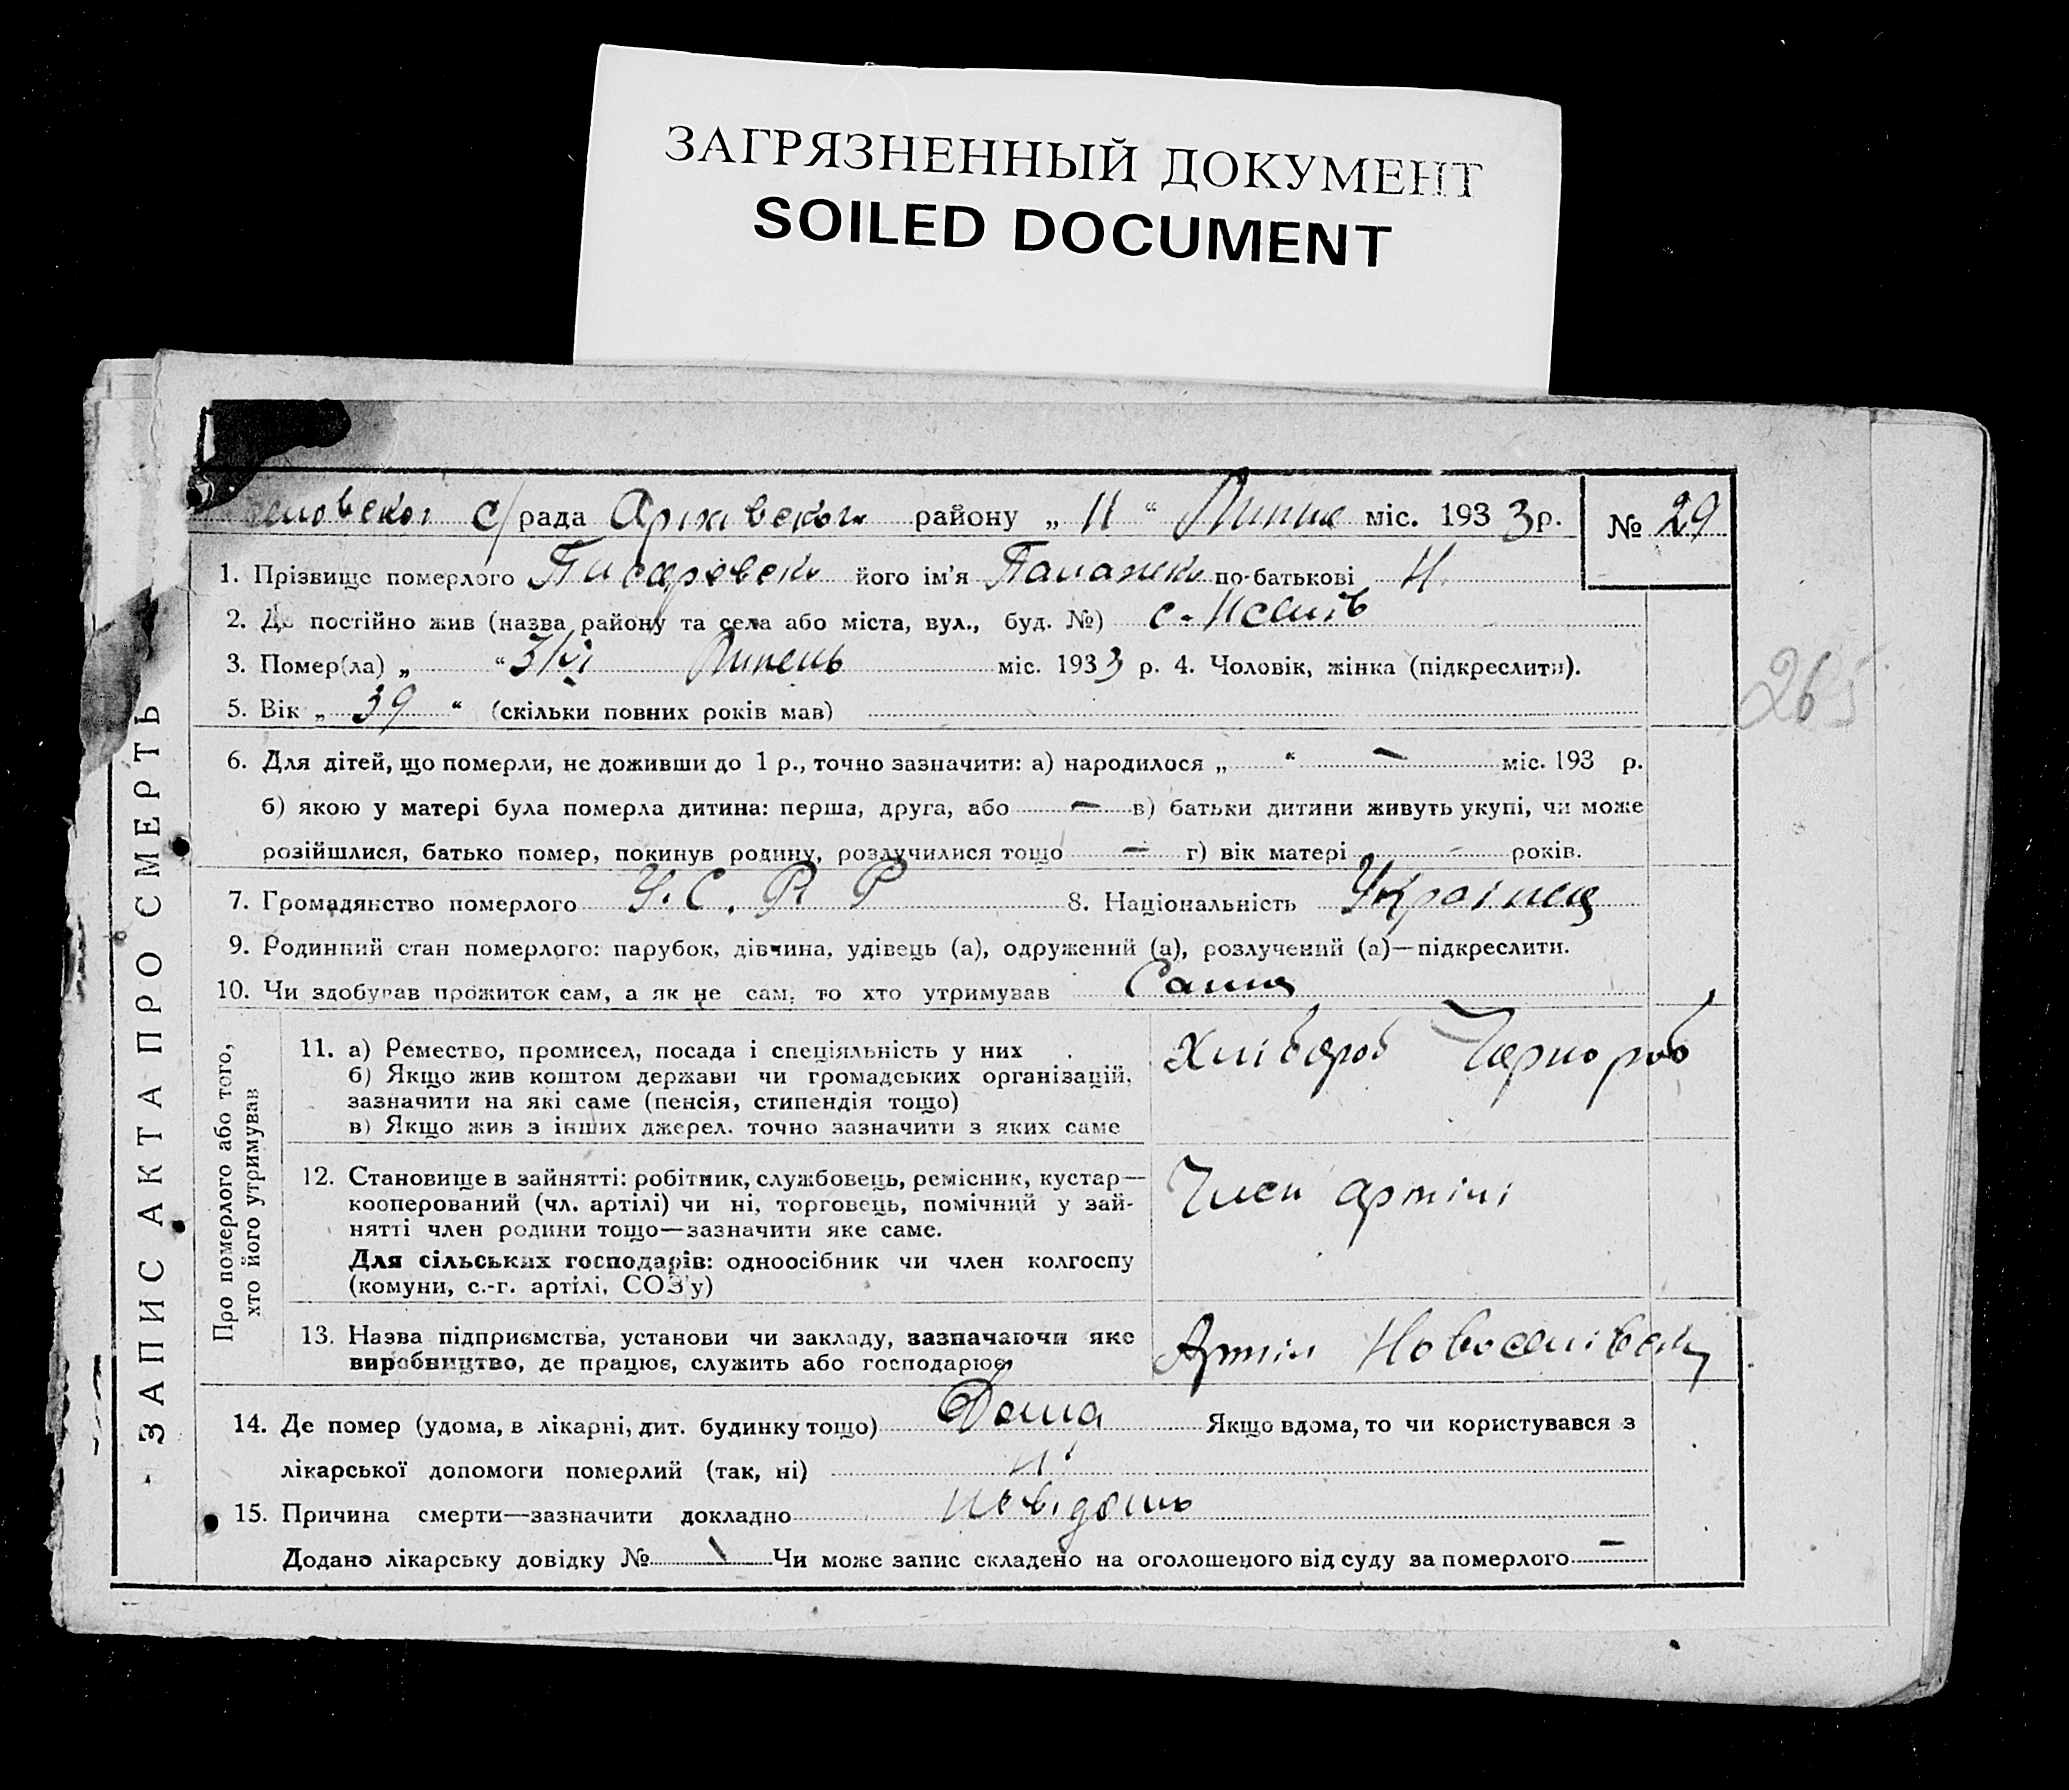 ЗАГРЯЗНЕННЫЙ ДОКУМЕНТ
SOILED DOCUMENT
с/рада району „ 11 “ міс. 1933 р. № 29
1. Прізвище померлого його ім'я по-батькові
2. Де постійно жив (назва району та села або міста, вул., буд. №) с.
3. Помер(ла) „ “ Липень міс. 1933 р. 4. Чоловік, жінка (підкреслити).
5. Вік „ 39 “ (скільки повних років мав)
6. Для дітей, що померли, не доживши до 1 р., точно зазначити: а) народилося „ “ — міс. 193 р.
б) якою у матері була померла дитина: перша, друга, або — в) батьки дитини живуть укупі, чи може
розійшлися, батько помер, покинув родину, розлучилися тощо — г) вік матері - років.
7. Громадянство померлого У.С.Р.Р 8. Національність Українец
9. Родинний стан померлого: парубок, дівчина, удівець (а), одружений (а), розлучений (а)—підкреслити.
10. Чи здобував прожиток сам, а як не сам, то хто утримував Сама
11. а) Ремество, промисел, посада і спеціяльність у них
б) Якщо жив коштом держави чи громадських організацій,
зазначити на які саме (пенсія, стипендія тощо)
в) Якщо жив з інших джерел, точно зазначити з яких саме
Хлібороб Чернороб
12. Становище в зайнятті: робітник, службовець, ремісник, кустар—
кооперований (чл. артілі) чи ні, торговець, помічний у зай-
нятті член родини тощо—зазначити яке саме.
Для сільських господарів: одноосібник чи член колгоспу
(комуни, с.-г. артілі, СОЗ'у)
Член артілі
13. Назва підприємства, установи чи закладу, зазначаючи яке
виробництво, де працює, служить або господарює
Артіл
14. Де помер (удома, в лікарні, дит. будинку тощо) Дома Якщо вдома, то чи користувався з
лікарської допомоги померлий (так, ні) ні
15. Причина смерти—зазначити докладно невідомо
Додано лікарську довідку № \ Чи може запис складено на оголошеного від суду за померлого —
Про померлого або того,
хто його утримував
ЗАПИС АКТА ПРО СМЕРТЬ
265